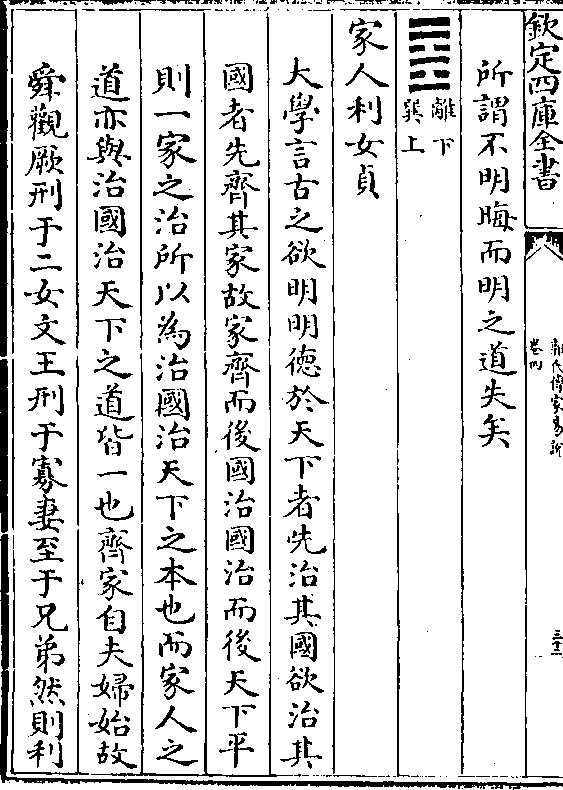 欽定四庫全書
郭氏傳家易說
卷四
三十二
所謂不明晦而明之道失矣
離下
巽上
家人利女貞
大學言古之欲明明德於天下者先治其國欲治其
國者先齊其家故家齊而後國治國治而後天下平
則一家之治所以為治國治天下之本也而家人之
道亦與治國治天下之道皆一也齊家自夫婦始故
舜觀厥刑于二女文王刑于寡妻至于兄弟然則利